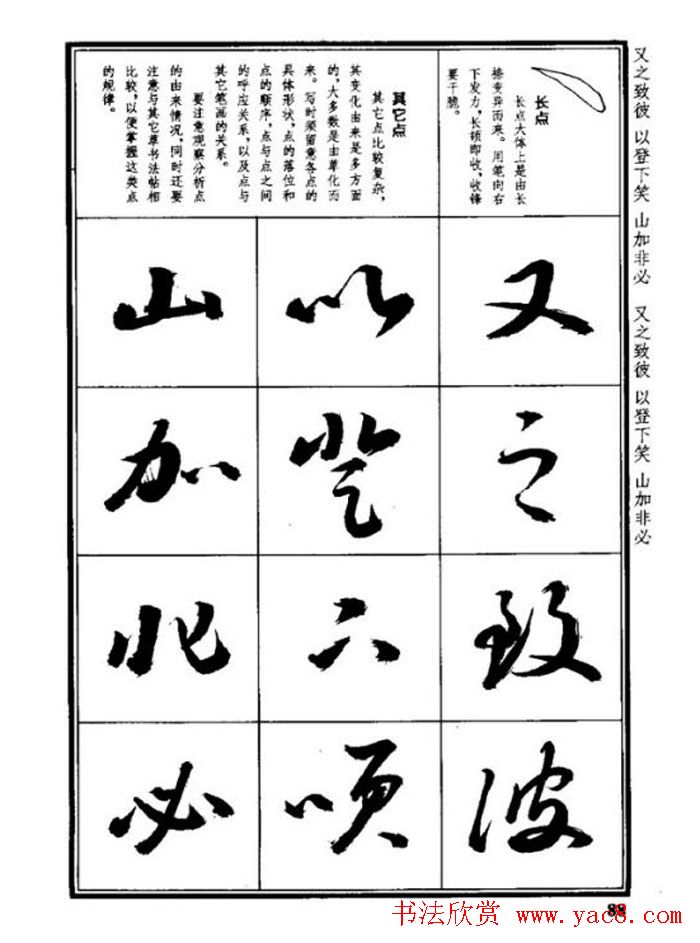 又之致彼 以登下笑 山加非必 又之致彼 以登下笑 山加非必
长点
长点大体上是由长
捺变异而来。用笔向右
下发力,长顿即收,收锋
要干脆。
其它点
其它点比较复杂,
其变化由来是多方面
的,大多数是由草化而
来。写时须留意各点的
具体形状,点的落位和
点的顺序,点与点之间
的呼应关系,以及点与
其它笔画的关系。
要注意观察分析点
的由来情况,同时还要
注意与其它草书法帖相
比较,以便掌握这类点
的规律。
又
之
致
彼
以
登
下
笑
山
加
非
必
书法欣赏 www.yac8.com